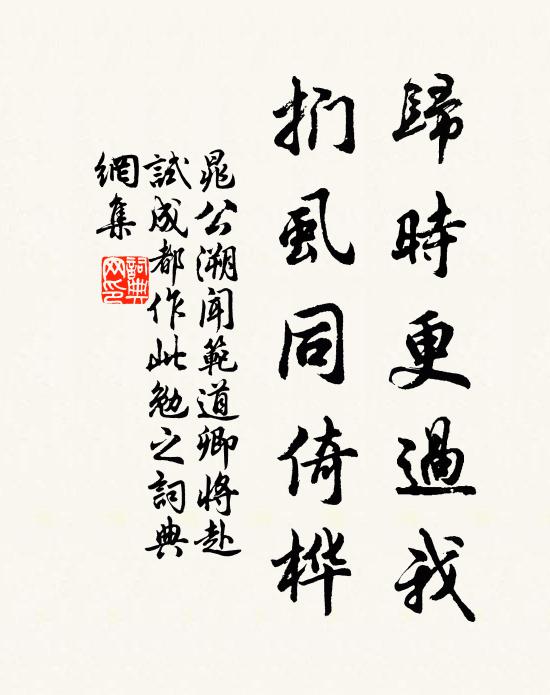 歸時更過我
捫虱同倚桦
晁公溯聞範道卿將赴
試成都作此勉之詞典
網集
詞典網印